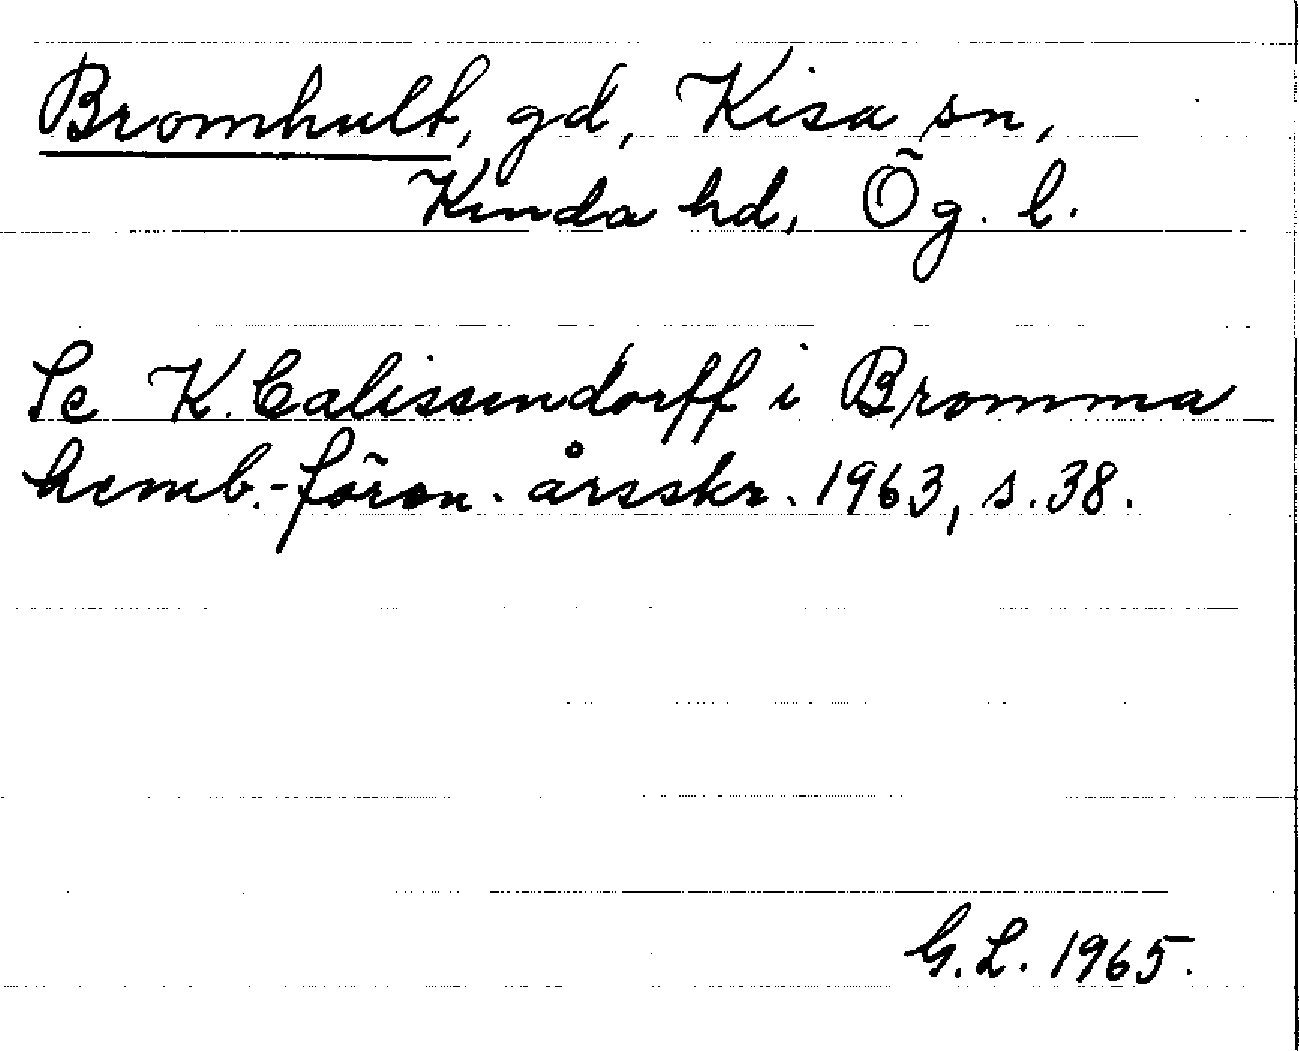 Bromhult, gd, Kisa sn,
Kinda hd, Ög. l.
Se K. Calissendorff i Bromma
hemb.-fören. årsskr. 1963, s. 38.
G. L. 1965.